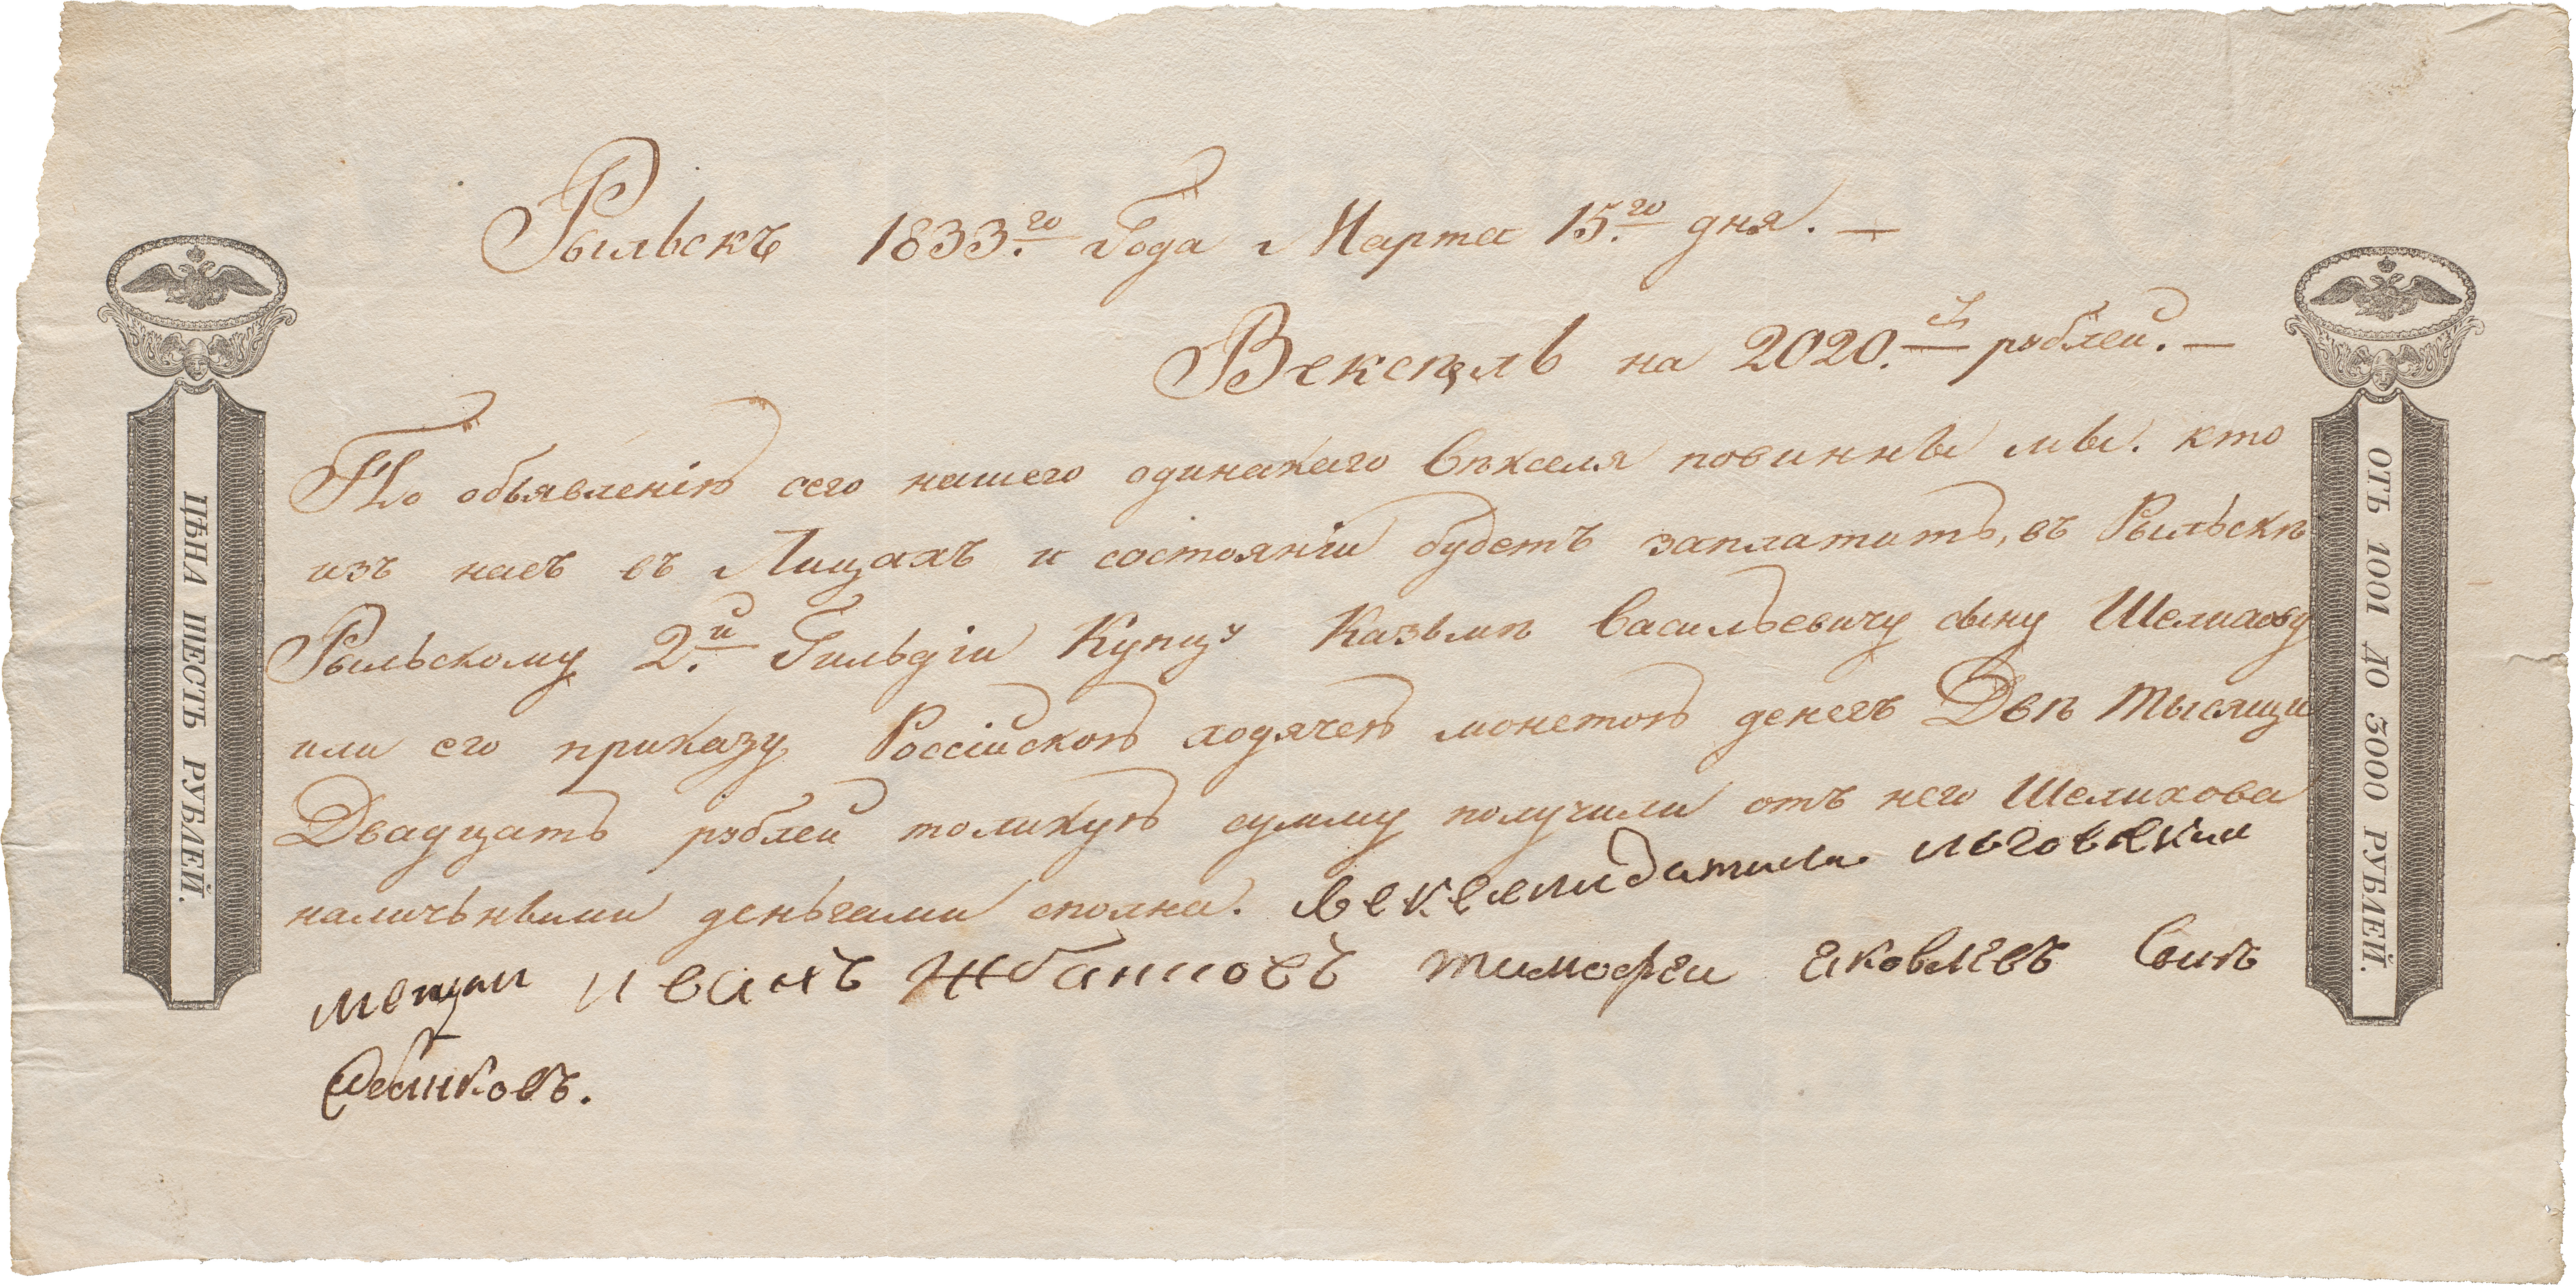 Рыльскъ 1833.го Года Марта 15.го дня. —
Вексѣль на 2020.ъ рублей. —
По объявленію сего нашего одинакаго вѣкселя повинны мы. кто
изъ насъ въ Лицахъ и состояніи будетъ заплатить, въ Рыльскѣ
Рыльскому 2.й Гильдіи Купцу Казьмѣ Васильевичу сыну Шелихову
или его приказу Россійскою ходячею монетою денегъ Двѣ тысящи
Двадцать рублей толикую сумму получили отъ него Шелихова
наличьными деньгами сполна. векселидатили льговскии
мещан иванъ Жбанновъ тимофеи яковлевъ Сынъ
ЦѢНА ШЕСТЬ РУБЛЕЙ.
ОТЪ 1001 ДО 3000 РУБЛЕЙ.